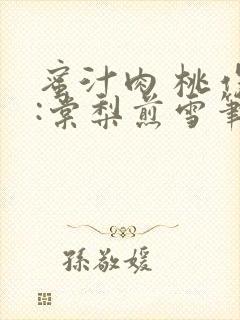 蜜汁肉桃作
:棠梨煎雪筆
孫敬媛